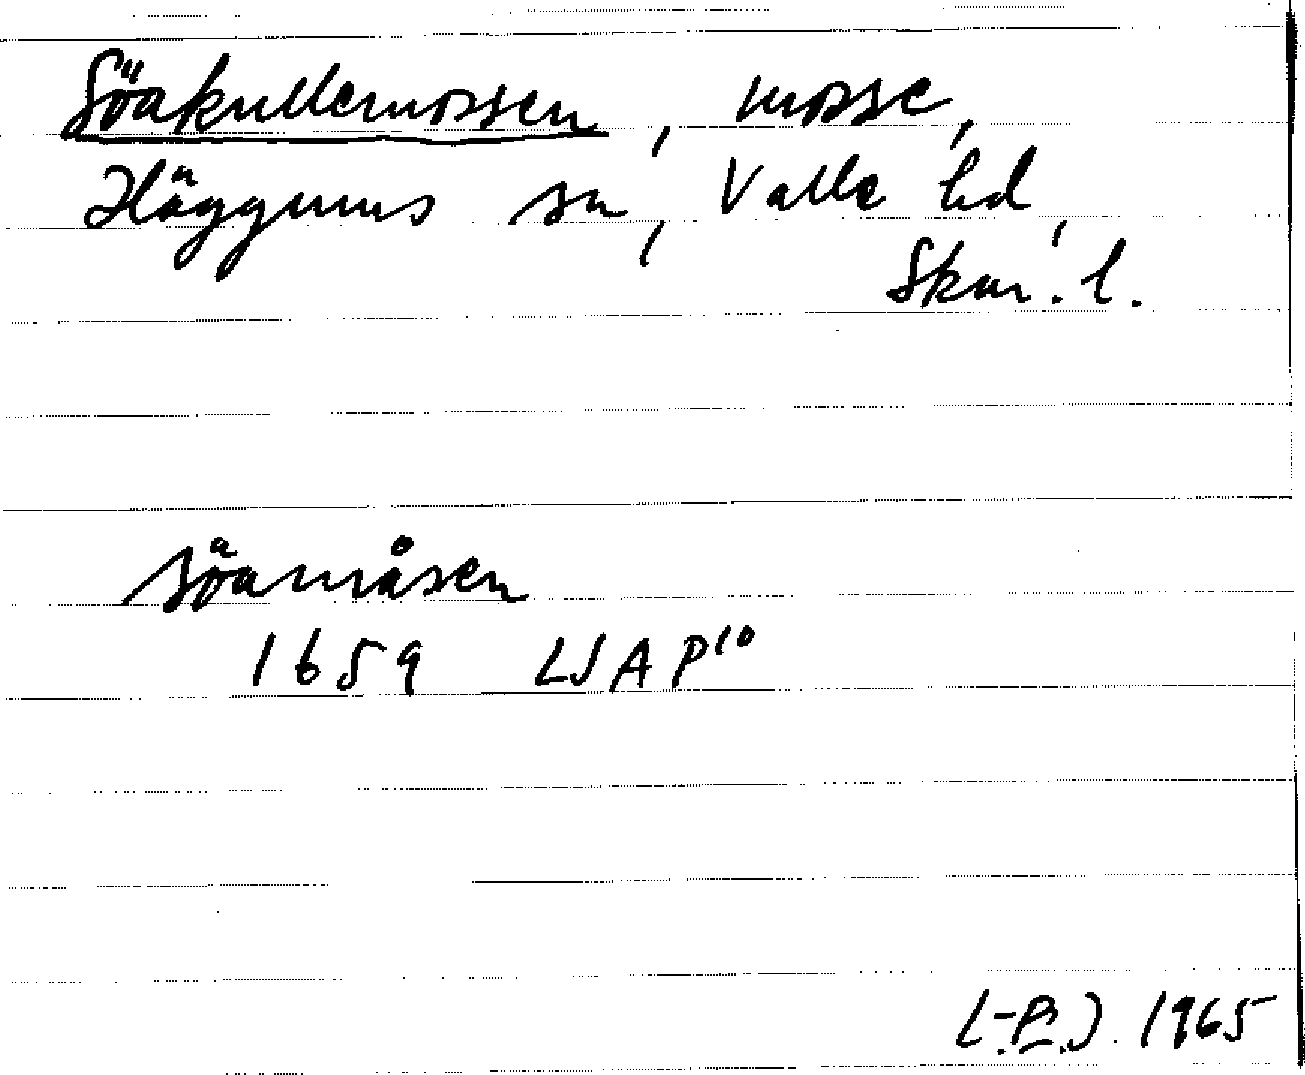 Söakullemossen, mosse,
Häggums sn, Valle hd,
Skar. l.
Söamåsen
1659 LSA P10
L-B.J. 1965